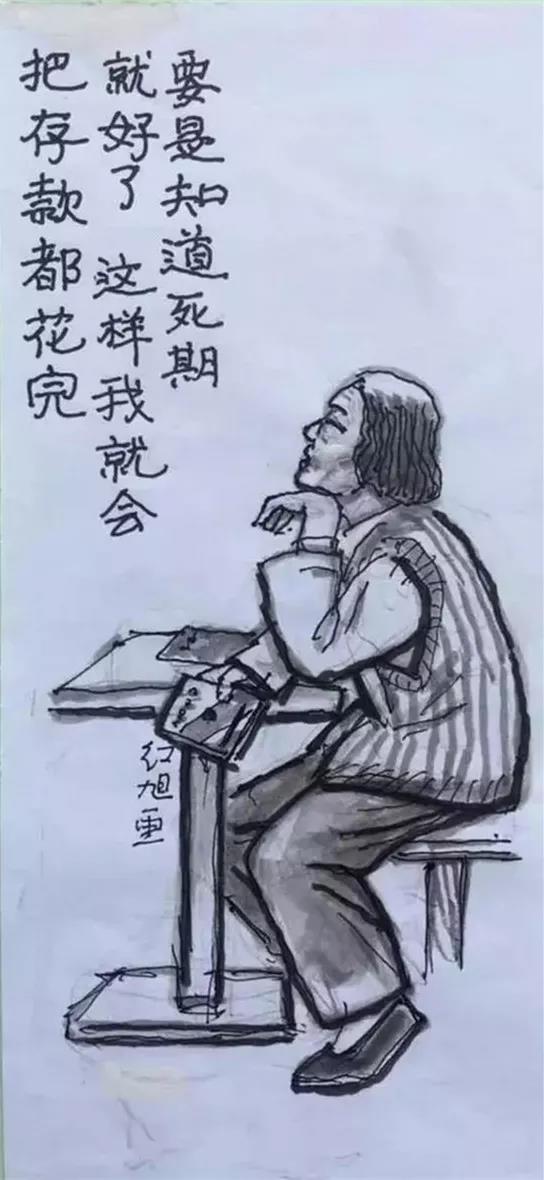 要是知道死期
就好了 这样我就会
把存款都花完
红旭画